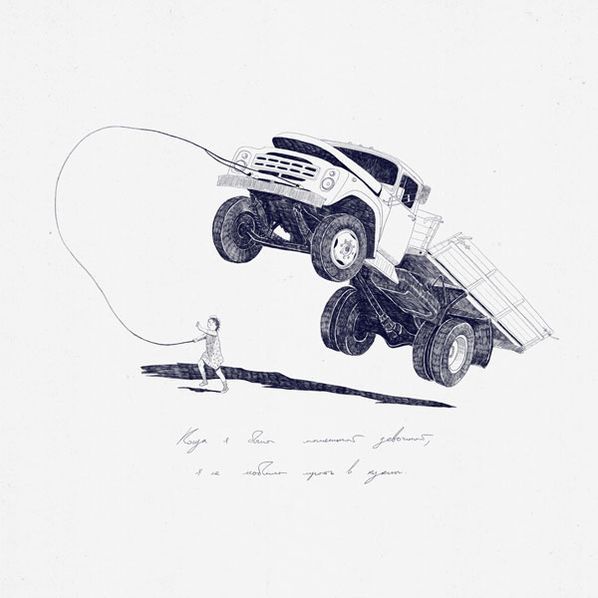 Когда я была маленькой девочкой,
я не любила играть в куклы.